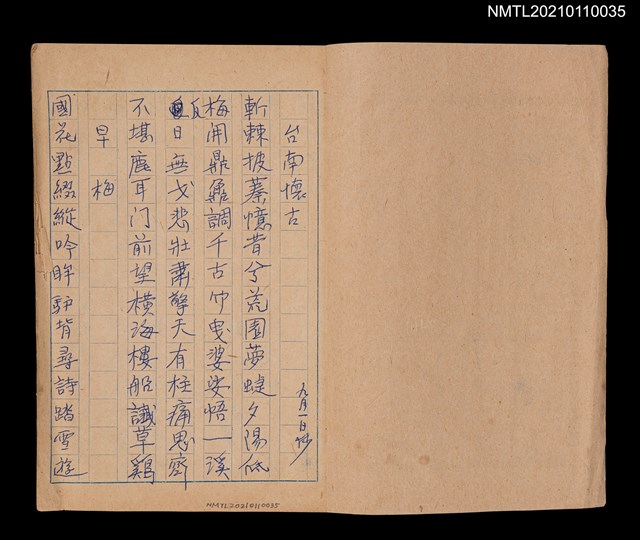 NMTL20210110035
台南懷古
九月一日抄
斬棘披蓁憶昔兮荒園夢蜨夕陽低
梅開鼎鼐調千古竹曳婆娑悟一溪
返日無戈悲壯肅擎天有柱痛思齊
不堪鹿耳门前望橫海樓船讖草鷄
早梅
國花點綴縱吟眸驴背尋詩踏雪遊
NMTL20210110035